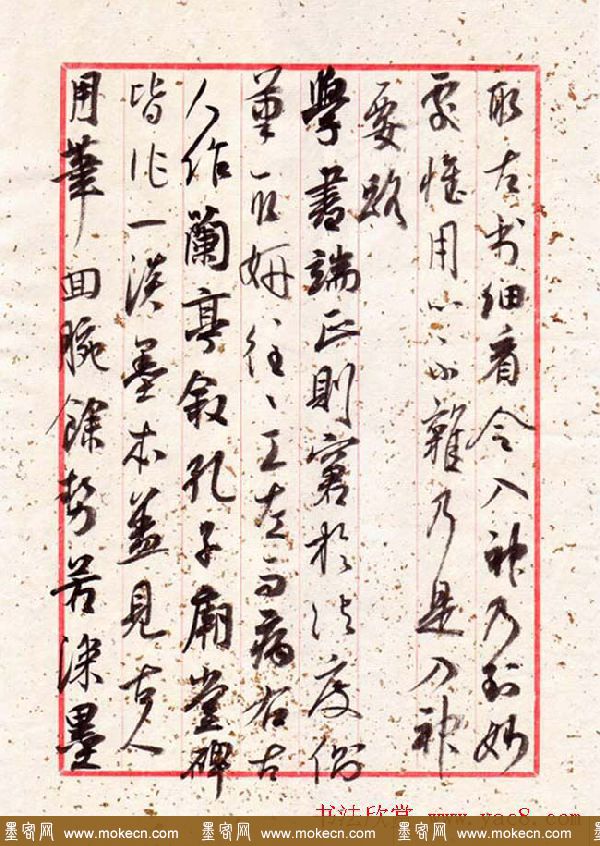 取古书细看令入神乃到妙
處惟用心不雜乃是入神
要路
學書端正則窘於法度側
筆取妍往往工左而病右古
人作蘭亭敘孔子廟堂碑
皆作一淡墨本蓋見古人
用筆回腕餘勢若深墨
书法欣赏 www.yac8.com
墨客网 www.mokecn.com 墨客网 www.mokecn.com 墨客网 www.mokecn.com